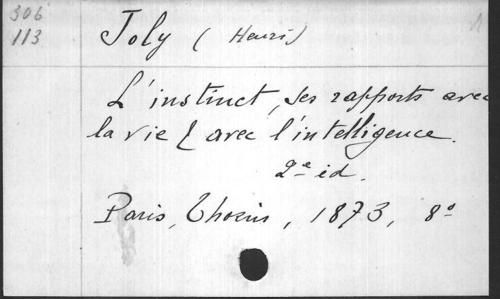 306
113
Joly (Henri)
L'instinct, ses rapports avec
la vie & avec l'intelligence.
2e éd.
Paris, Thorin, 1873, 8o